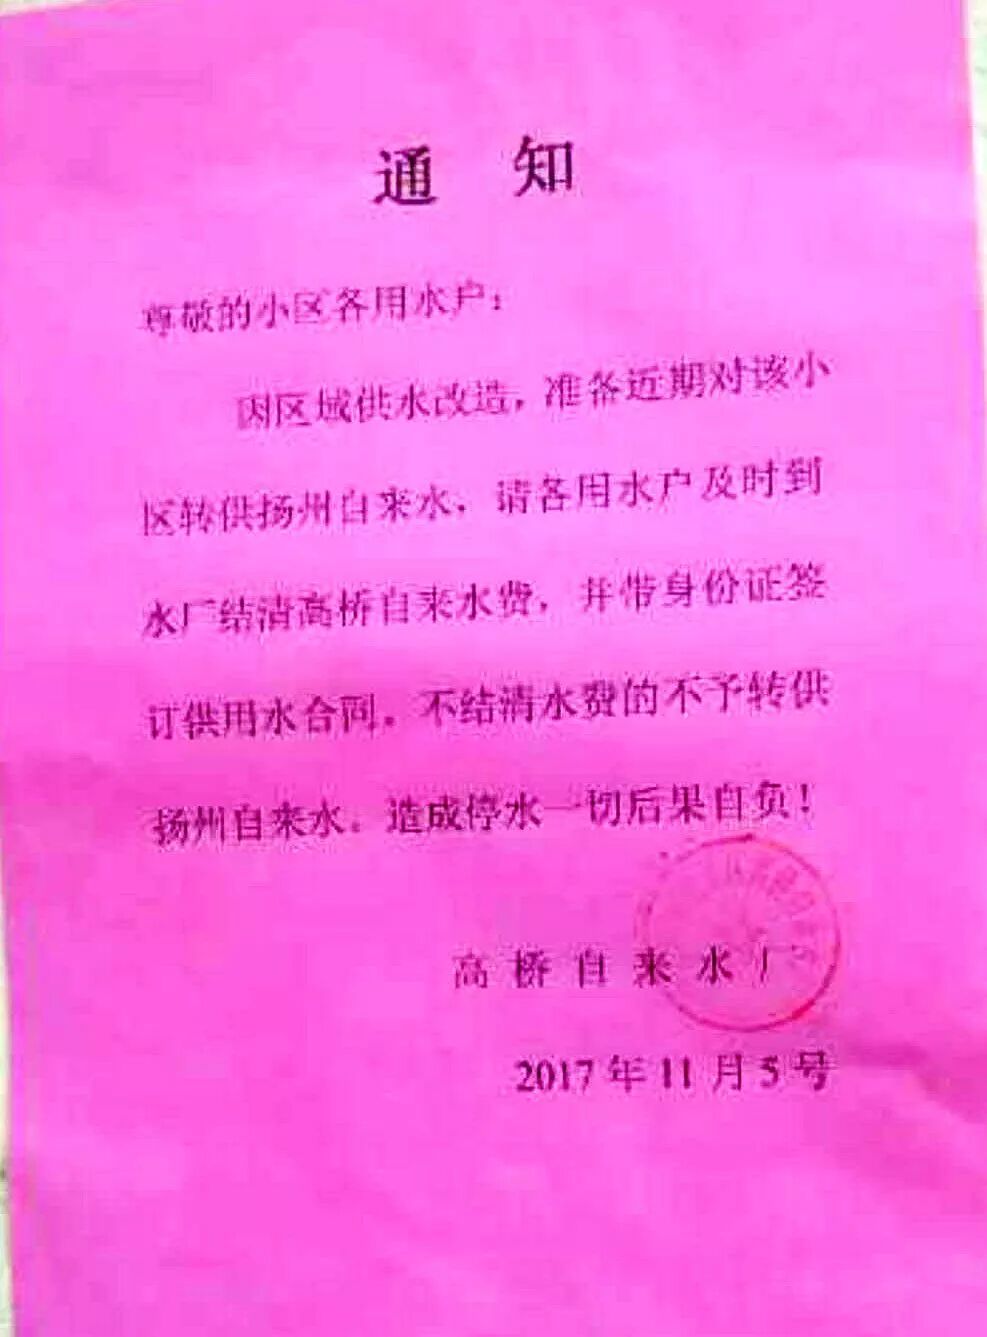 通 知
尊敬的小区各用水户：
因区域供水改造，准备近期对该小
区转供扬州自来水，请各用水户及时到
水厂结清高桥自来水费，并带身份证签
订供用水合同。不结清水费的不予转供
扬州自来水。造成停水一切后果自负！
高桥自来水厂
2017年11月5号